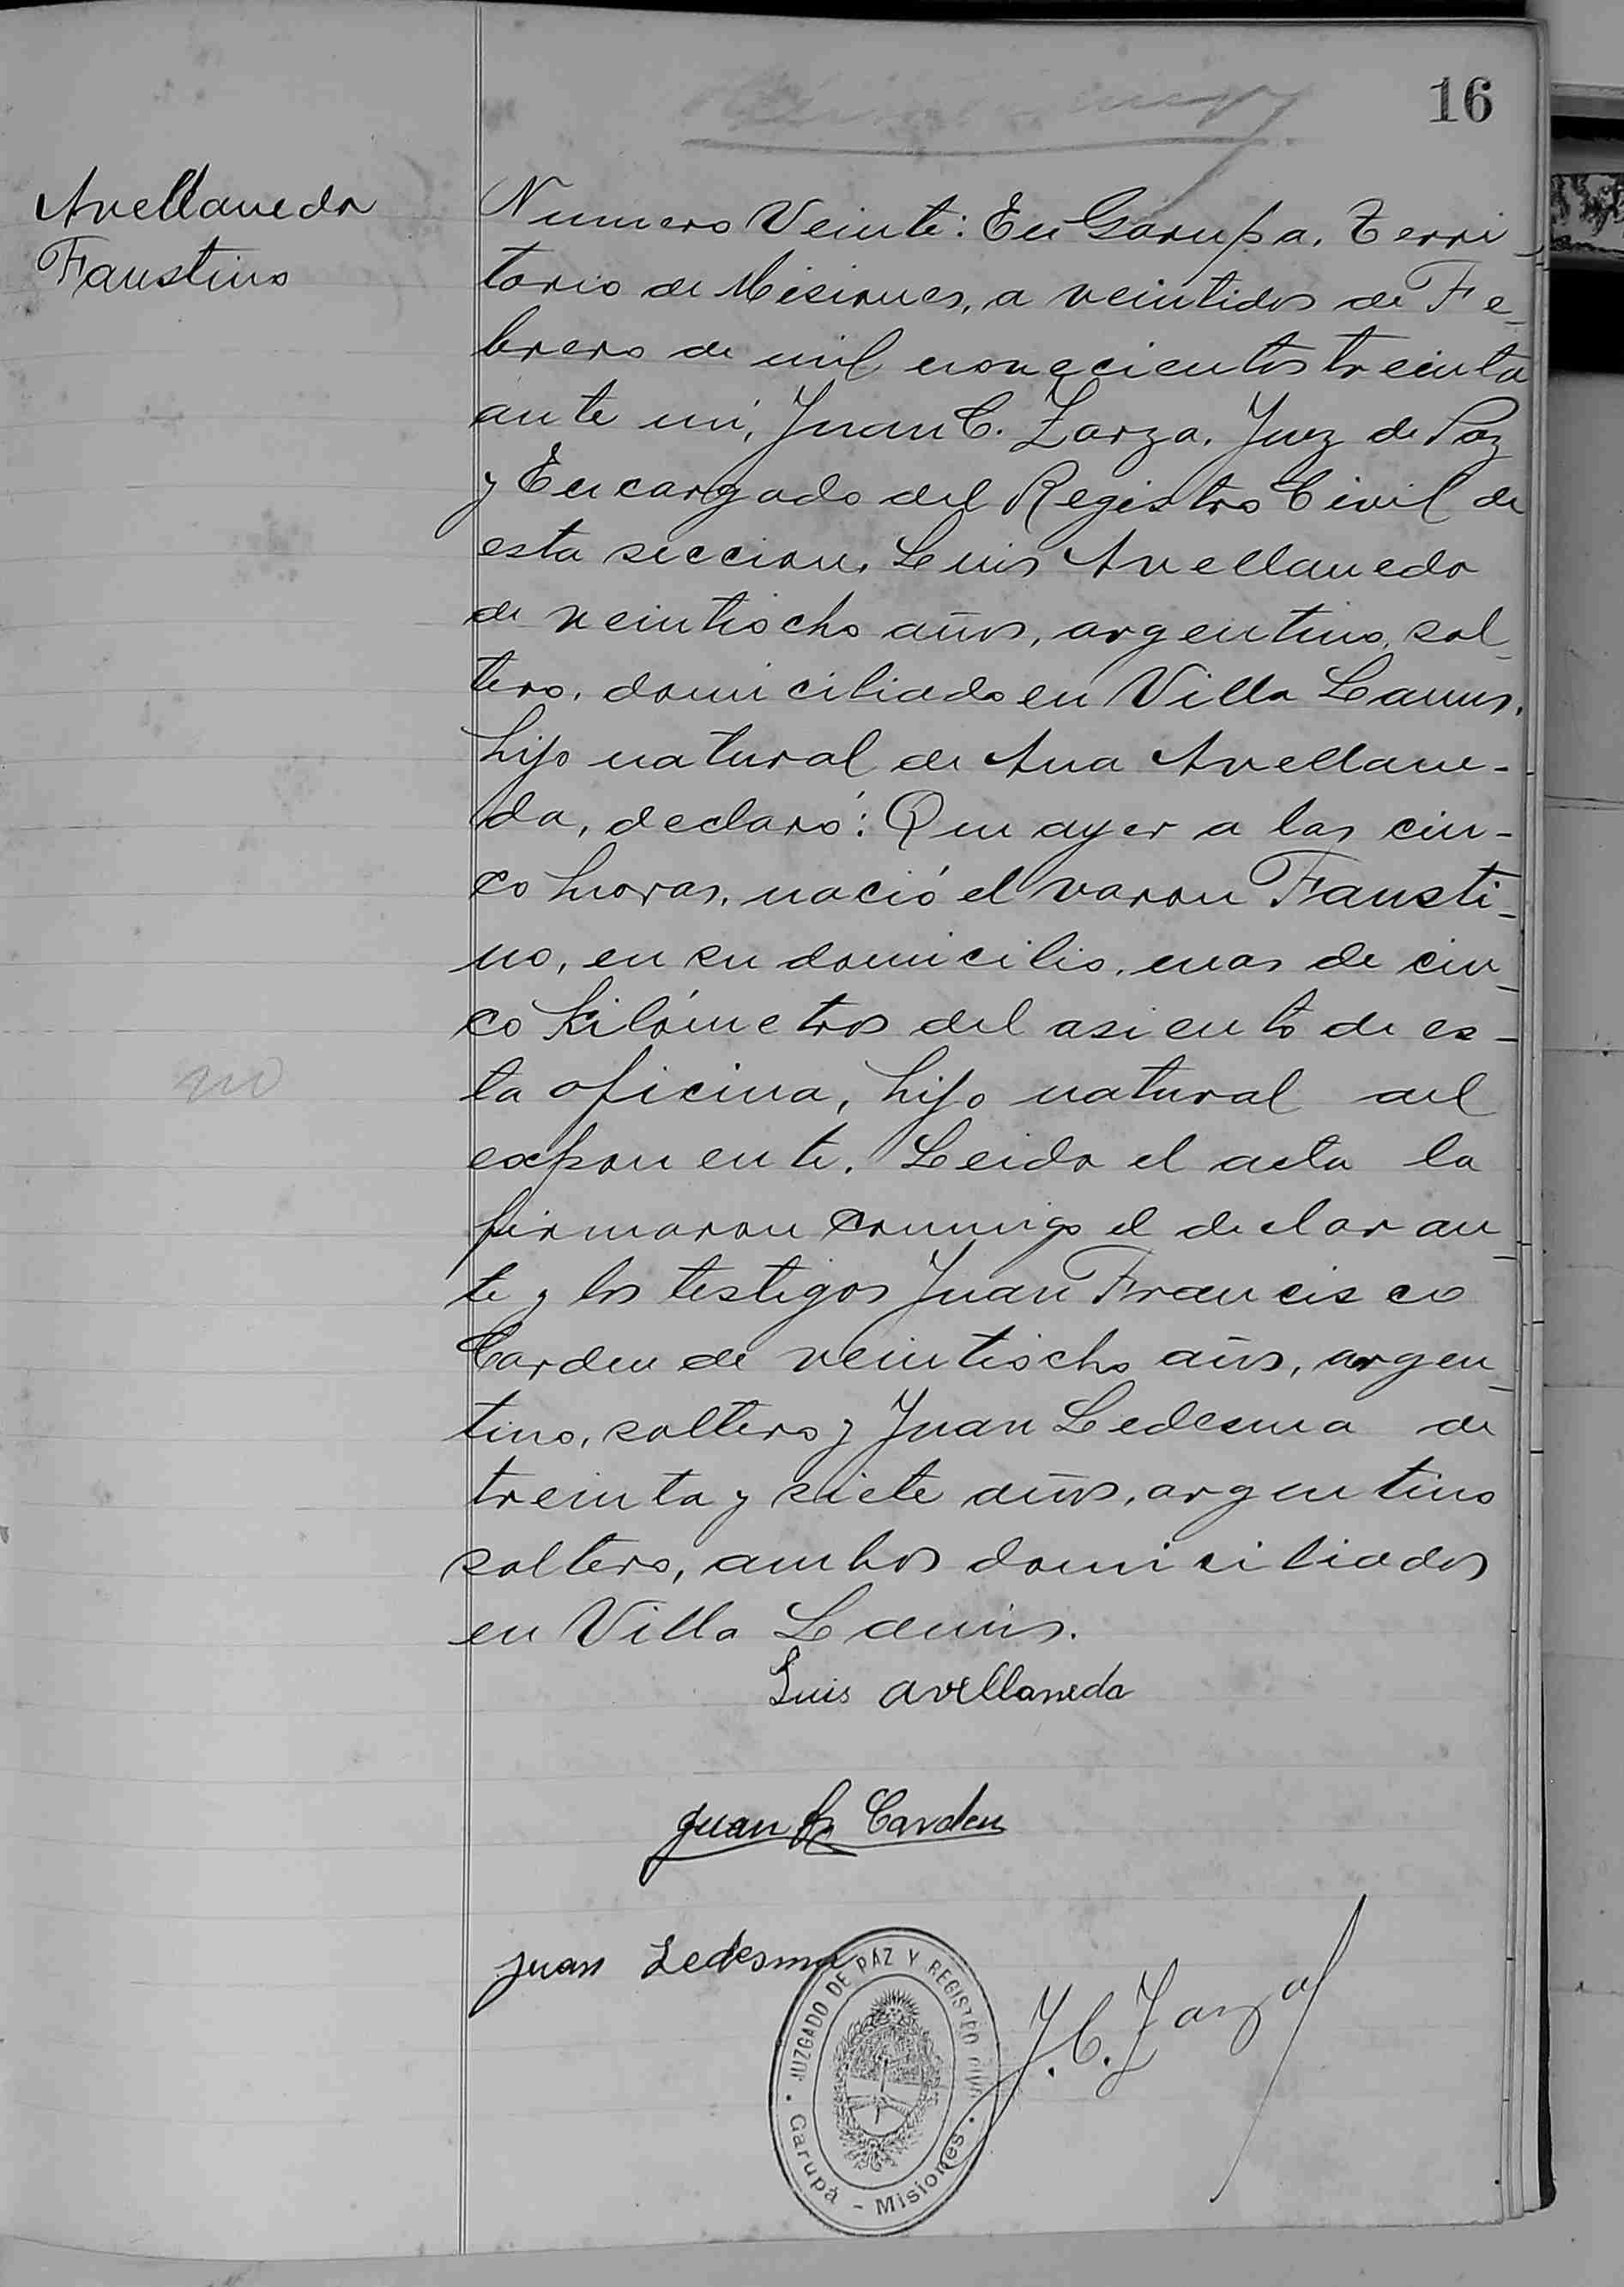 16
Avellaneda
Faustino
Numero Veinte: En Garupa, Terri
torio de Misiones, a veintidos de Fe_
brero de mil novecientos treinta
ante mi, Juan C. Zarza, Juez de Paz
y Encargado del Registro Civil de
esta seccion, Luis Avellaneda
de veintiocho años, argentino, sol_
tero, domiciliado en Villa Lanus,
hijo natural de Ana Avellane-
da, declaró: Que ayer a las cin-
co horas, nació el varon Fausti_
no, en su domicilio, mas de cin_
co Kilómetros del asiento de es-
ta oficina, hijo natural del
exponente. Leida el acta la
firmaron conmigo el declaran_
te y los testigos Juan Francisco
Carden de veintiocho años, argen_
tino, soltero y Juan Ledesma de
treinta y siete años, argentino
soltero, ambos domiciliados
en Villa Lanús.
no
Luis avellaneda
Juan F. Carden
Juan Ledesma
J. C. Zarza
JUZGADO DE PAZ Y REGISTRO CIVIL
Garupá - Misiones